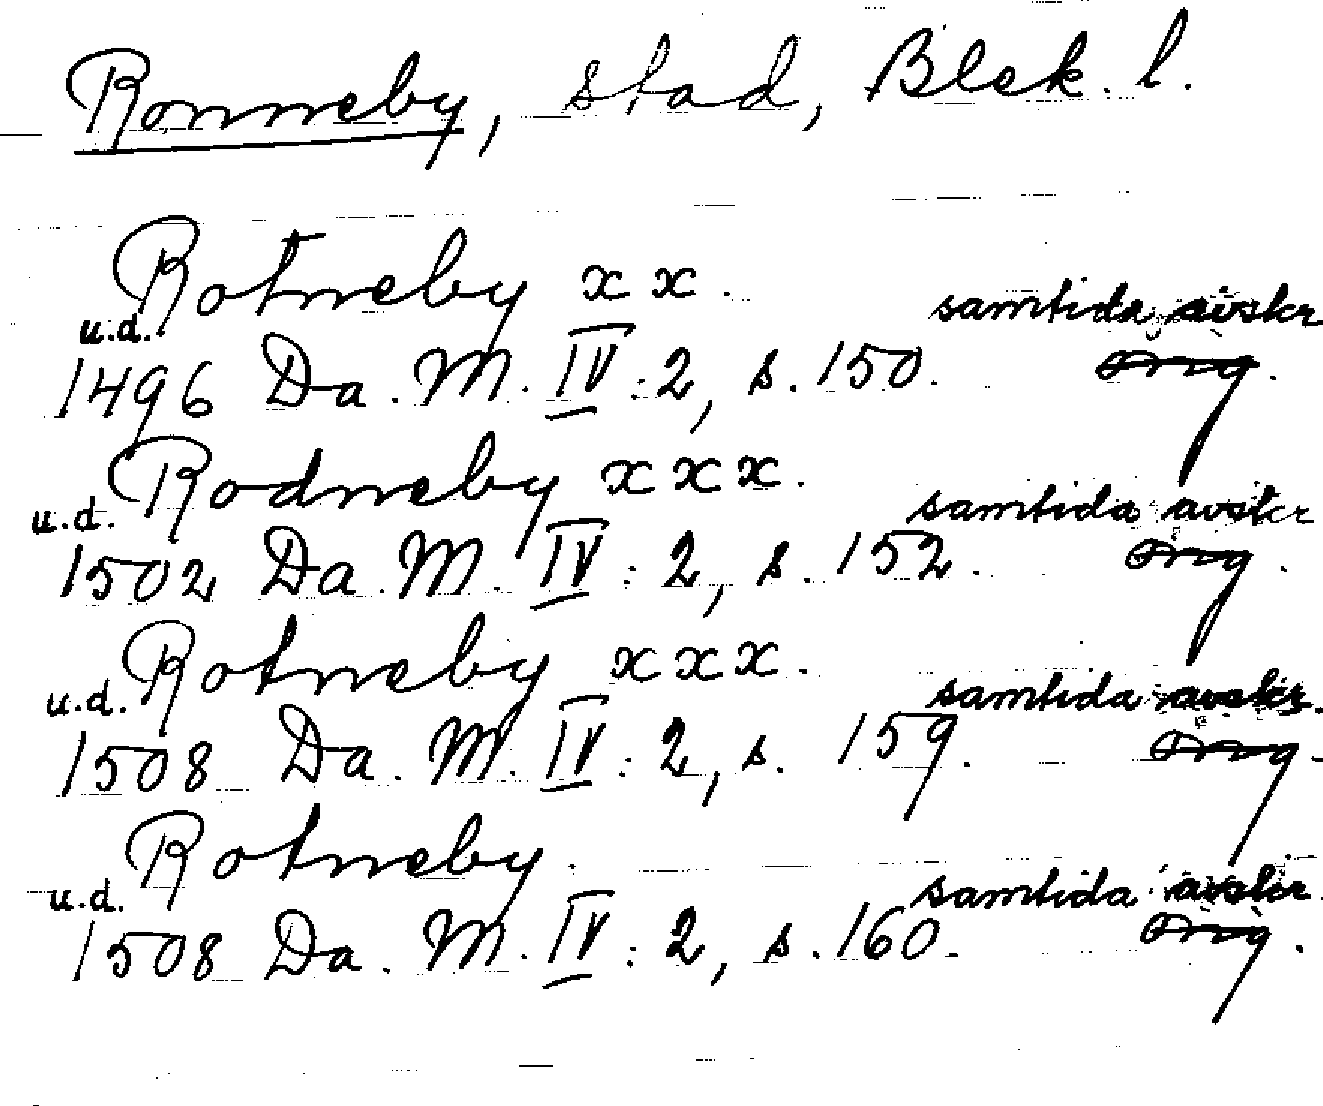 Ronneby, stad, Blek. l.
Rotneby xx.
samtida avskr
u.d.
1496 Da. M. IV: 2, s. 150. orig.
Rodneby xxx.
samtida avskr
u.d.
1502 Da. M. IV: 2, s. 152. orig.
Rotneby xxx.
samtida avskr.
u.d.
1508 Da. M. IV: 2, s. 159. orig.
Rotneby.
samtida avskr.
u.d.
1508 Da. M. IV: 2, s. 160. orig.